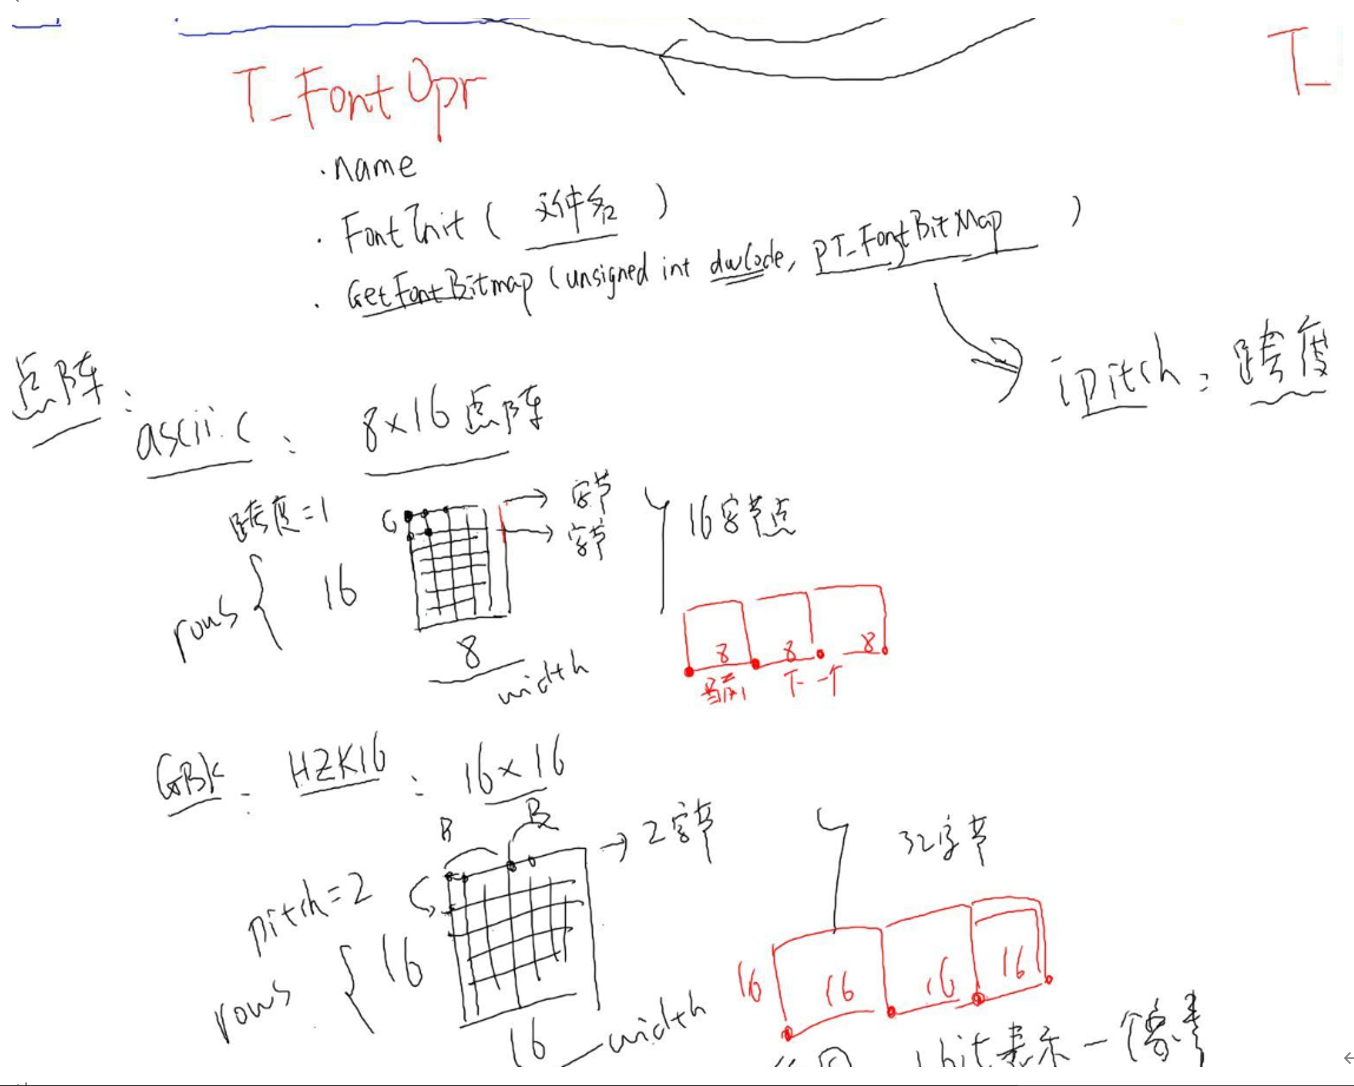 T_FontOpr
T_
.name
.FontInit(文件名)
.GetFontBitmap(unsigned int dwCode, pT_FontBitMap)
ipitch:跨度
点阵:
ascii.c: 8×16点阵
跨度=1
字节
字节
16字节
rows{ 16
8
width
8 8 8
当前 下一个
GBK: HZK16: 16×16
B B
→2字节
32字节
pitch=2
rows { 16
16 width
16 16 16 16
1bit表示一个像素